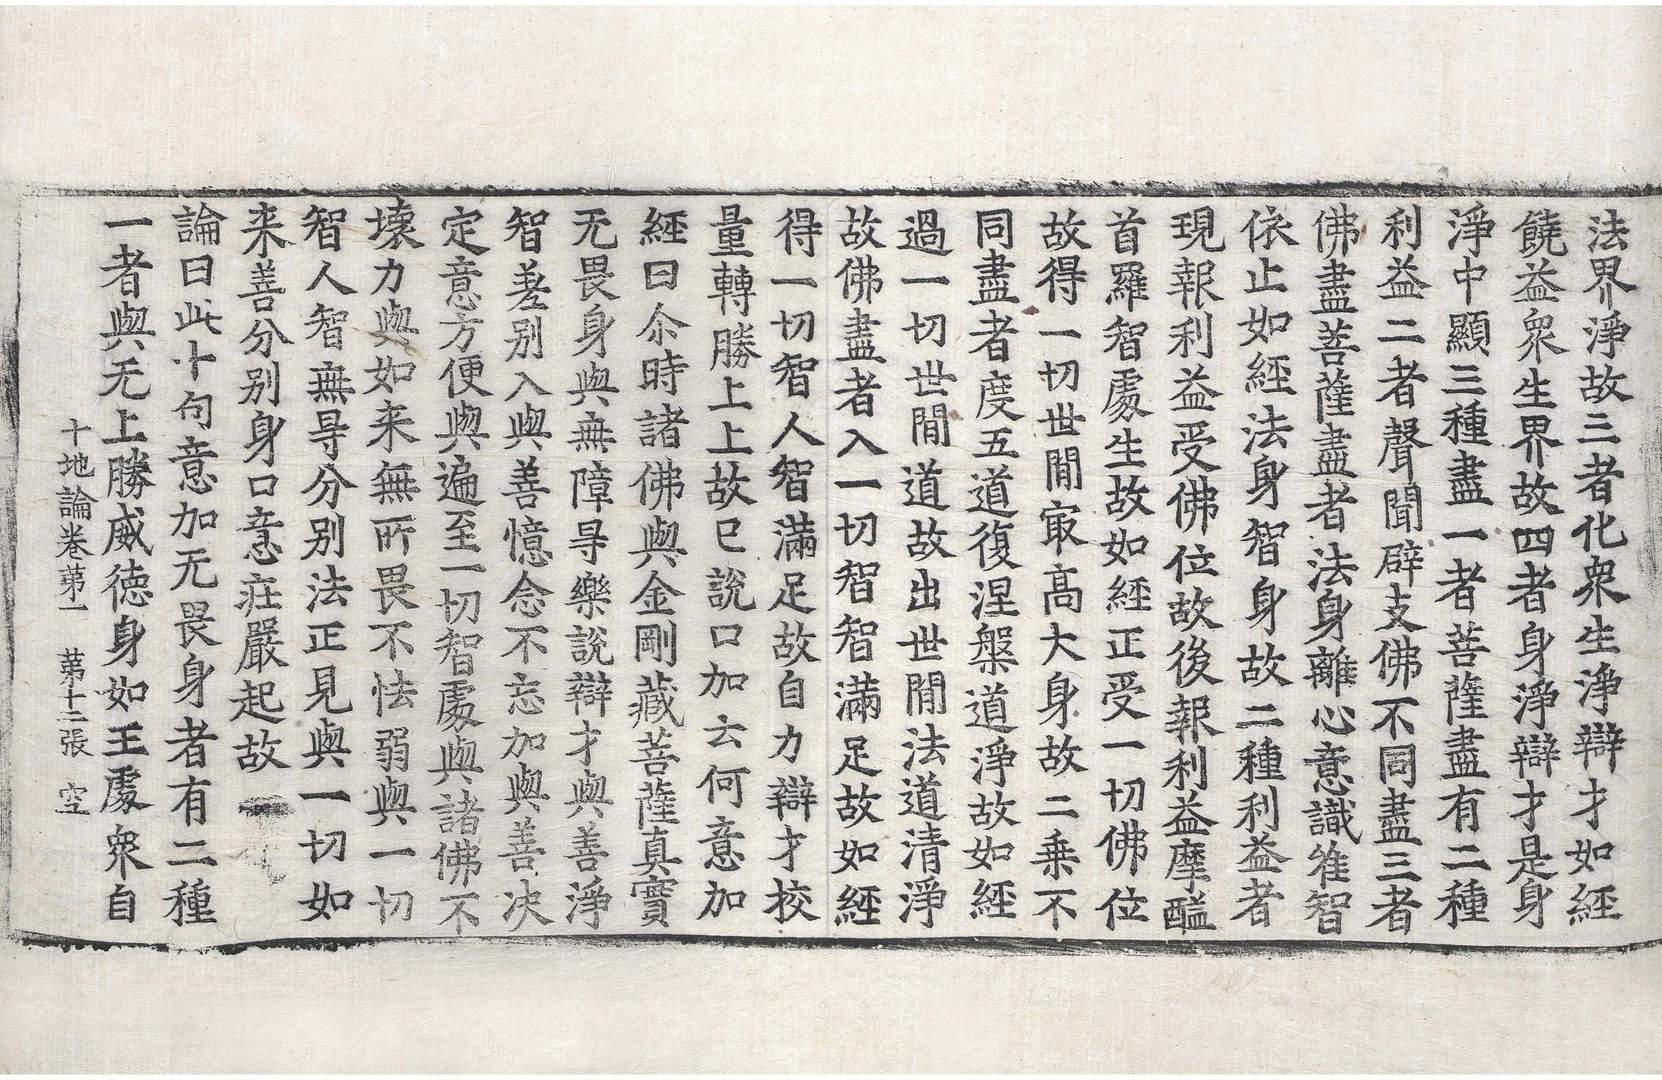 法界淨故三者化衆生淨辯才如經
饒益衆生界故四者身淨辯才是身
淨中顯三種盡一者菩薩盡有二種
利益二者聲聞辟支佛不同盡三者
佛盡菩薩盡者法身離心意識唯智
依止如經法身智身故二種利益者
現報利益受佛位故後報利益摩醯
首羅智處生故如經正受一切佛位
故得一切世間㝡高大身故二乗不
同盡者度五道復涅槃道淨故如經
過一切世間道故出世間法道清淨
故佛盡者入一切智智滿足故如經
得一切智人智滿足故自力辯才挍
量轉勝上上故已說口加云何意加
經曰尒時諸佛與金剛藏菩薩真實
无畏身與無障㝵樂說辯才與善淨
智差别入與善憶念不忘加與善决
定意方便與遍至一切智處與諸佛不
壞力與如来無所畏不怯弱與一切
智人智無㝵分别法正見與一切如
来善分别身口意莊嚴起故
論曰此十句意加无畏身者有二種
一者與无上勝威德身如王處衆自
十地論卷苐一　苐十二張　空